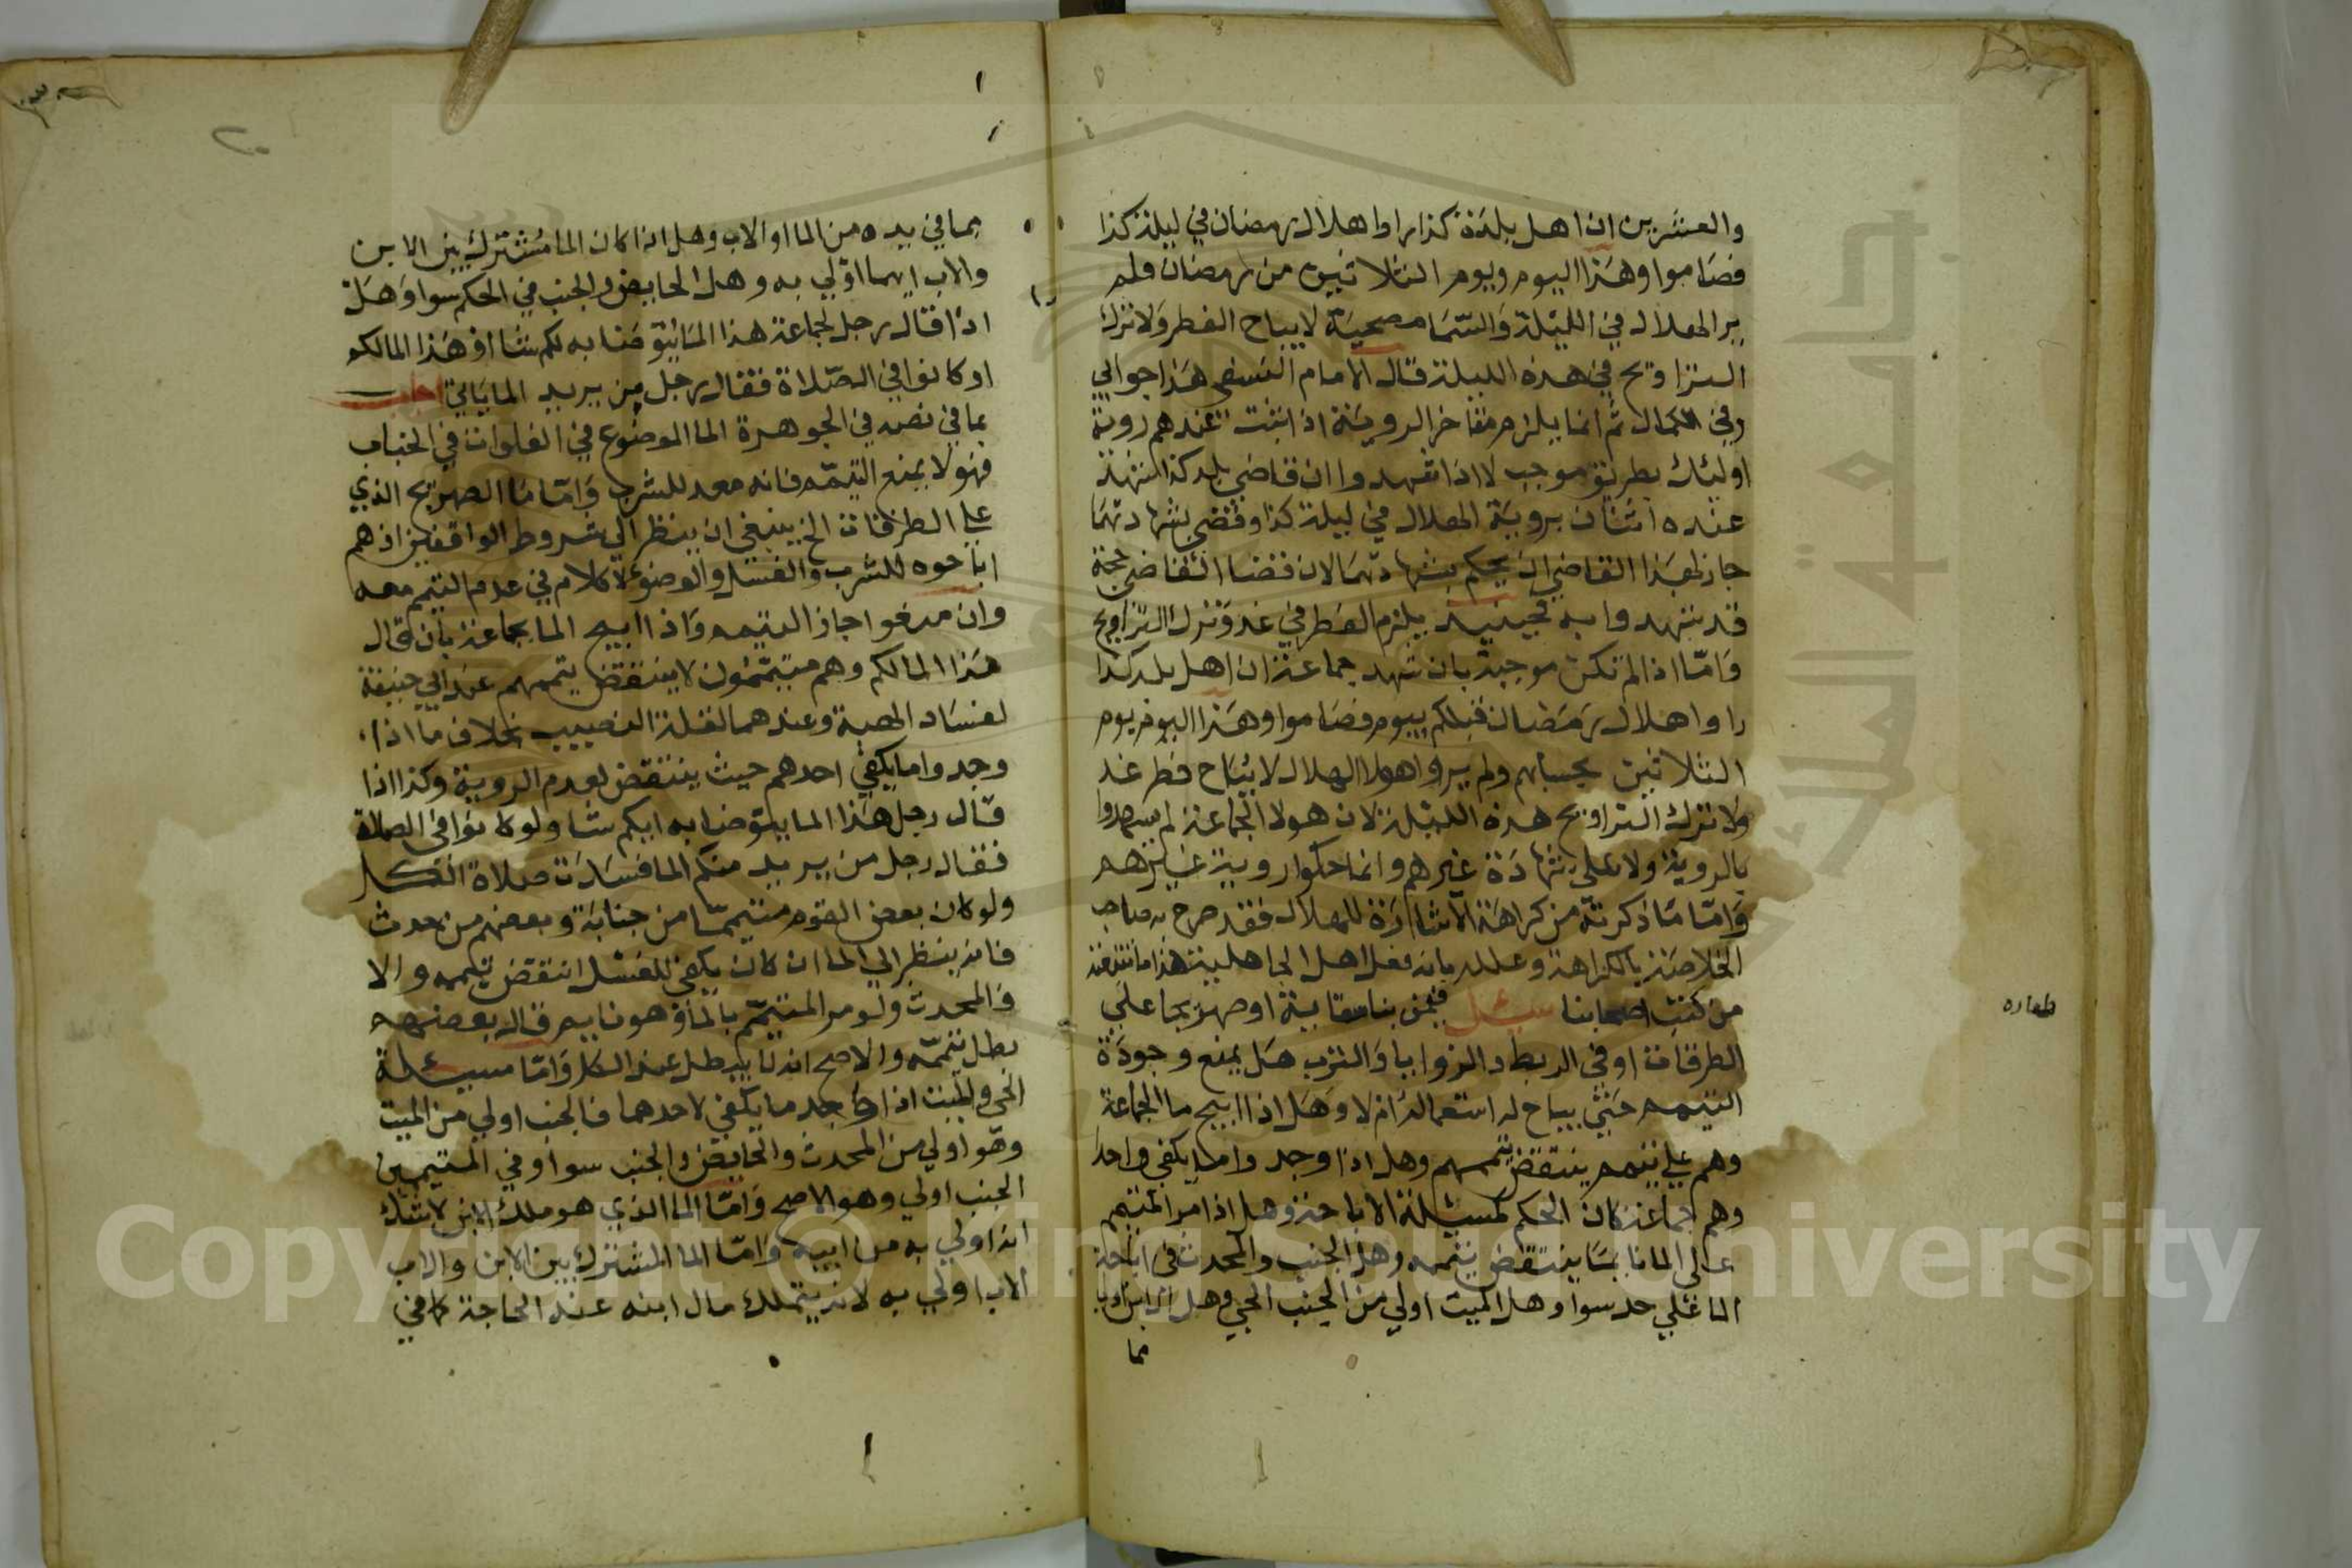 والعشرين ان اهل بلدة كذا راوا هلال رمضان في ليلة كذا
فصاموا وهذا اليوم ويوم الثلاثين من رمضان فلم
ير الهلال في الليلة والسما مصحية لا يباح الفطر ولا نترك
التراويح في هذه الليلة قال الامام النسفي هذا جوابي
وفي الكمال ثم انما يلزم متاخر الروية اذا ثبت عندهم روية
اوليك بطريق موجب لا اذا شهدوا ان قاضي بلد كذا شهد
عنده اثنان بروية الهلال في ليلة كذا وقضى بشهادتهما
جاز لهذا القاضي ان يحكم بشهادتهما لان قضا القاضي حجة
قد شهدوا به فحينيد يلزم الفطر في غد وترك التراويح
واما اذا لم تكن موجبة بان شهد جماعة ان اهل بلد كذا
راوا هلال رمضان قبلكم بيوم فصاموا وهذا اليوم يوم
الثلاثين بحسابهم ولم يروا هولا الهلال لا يباح فطر غد
ولا تترك التراويح هذه الليلة لان هولا الجماعة لم يشهدوا
بالروية ولا على شهادة غيرهم وانما حكوا روية غيرهم
واما ما ذكرته من كراهة الاشارة للهلال فقد صرح به صاحب
الخلاصة بالكراهة وعلله بانه فعل اهل الجاهلية هذا ما
من كتب اصحابنا سيل فيمن بنا سقاية او صهريجا على
الطرقات او في الربط والزوايا والترب هل يمنع وجودة
التيمم حتى يباح له استعماله ام لا وهل اذا ابيح ما الجماعة
وهم على تيمم ينتقض تيممهم وهل اذا وجد واما يكفي واحد
وهم جماعة كان الحكم كمسيلة الاباحة وهل اذا مر المتيمم
على الما نايما ينتقض تيممه وهل الجنب والمحدث في اباحة
الما على حد سوا وهل الميت اولى من الجنب الحي وهل الابن اولى
مما
طهاره
بما في يده من الما او الاب وهل اذا كان الما مشترك بين الابن
والاب ايهما اولى به وهل الحايض والجنب في الحكم سوا وهل
اذا قال رجل لجماعة هذا الما يتوضا به لكم شا او هذا الما لكم
او كانوا في الصلاة فقال رجل من يريد الما ياتي اجاب
بما في نصه في الجوهرة الما الموضوع في الفلوات في الحباب
فهو لا يمنع التيمم فانه معد للشرب واما ما الصهريج الذي
على الطرقات الخ ينبغي ان ينظر الى شروط الواقفين اذ هم
اباحوه للشرب والغسل والوضو لا كلام في عدم التيمم معه
وان منعوا جاز التيمم واذا ابيح الما بجماعة بان قال
هذا الما لكم وهم متيممون لا ينتقض تيممهم عند ابي حنيفة
لفساد الهبة وعندهما لقلة النصيب بخلاف ما اذا
وجدوا ما يكفي احدهم حيث ينتقض لعدم الروية وكذا اذا
قال رجل هذا الما يتوضا به ايكم شا ولو كانوا في الصلاة
فقال رجل من يريد منكم الما فسدت صلاة الكل
ولو كان بعض القوم متيمما من جنابة وبعضهم من حدث
فانه ينظر الى الما ان كان يكفي للغسل انتقض تيممه والا
فالمحدث ولو مر المتيمم بالما وهو نايم قال بعضهم
بطل تيممه والاصح انه لا يبطل عند الكل واما مسيلة
الحي والميت اذا وجد ما يكفي لاحدهما فالجنب اولى من الميت
وهو اولى من المحدث والحايض والجنب سوا وفي المتيمين
الجنب اولى وهو الاصح واما الما الذي هو ملك الابن لا شك
انه اولى به من ابيه واما الما المشترك بين الابن والاب
الاب اولى به لانه يتملك مال ابنه عند الحاجة كما في
Copyright © King Saud University